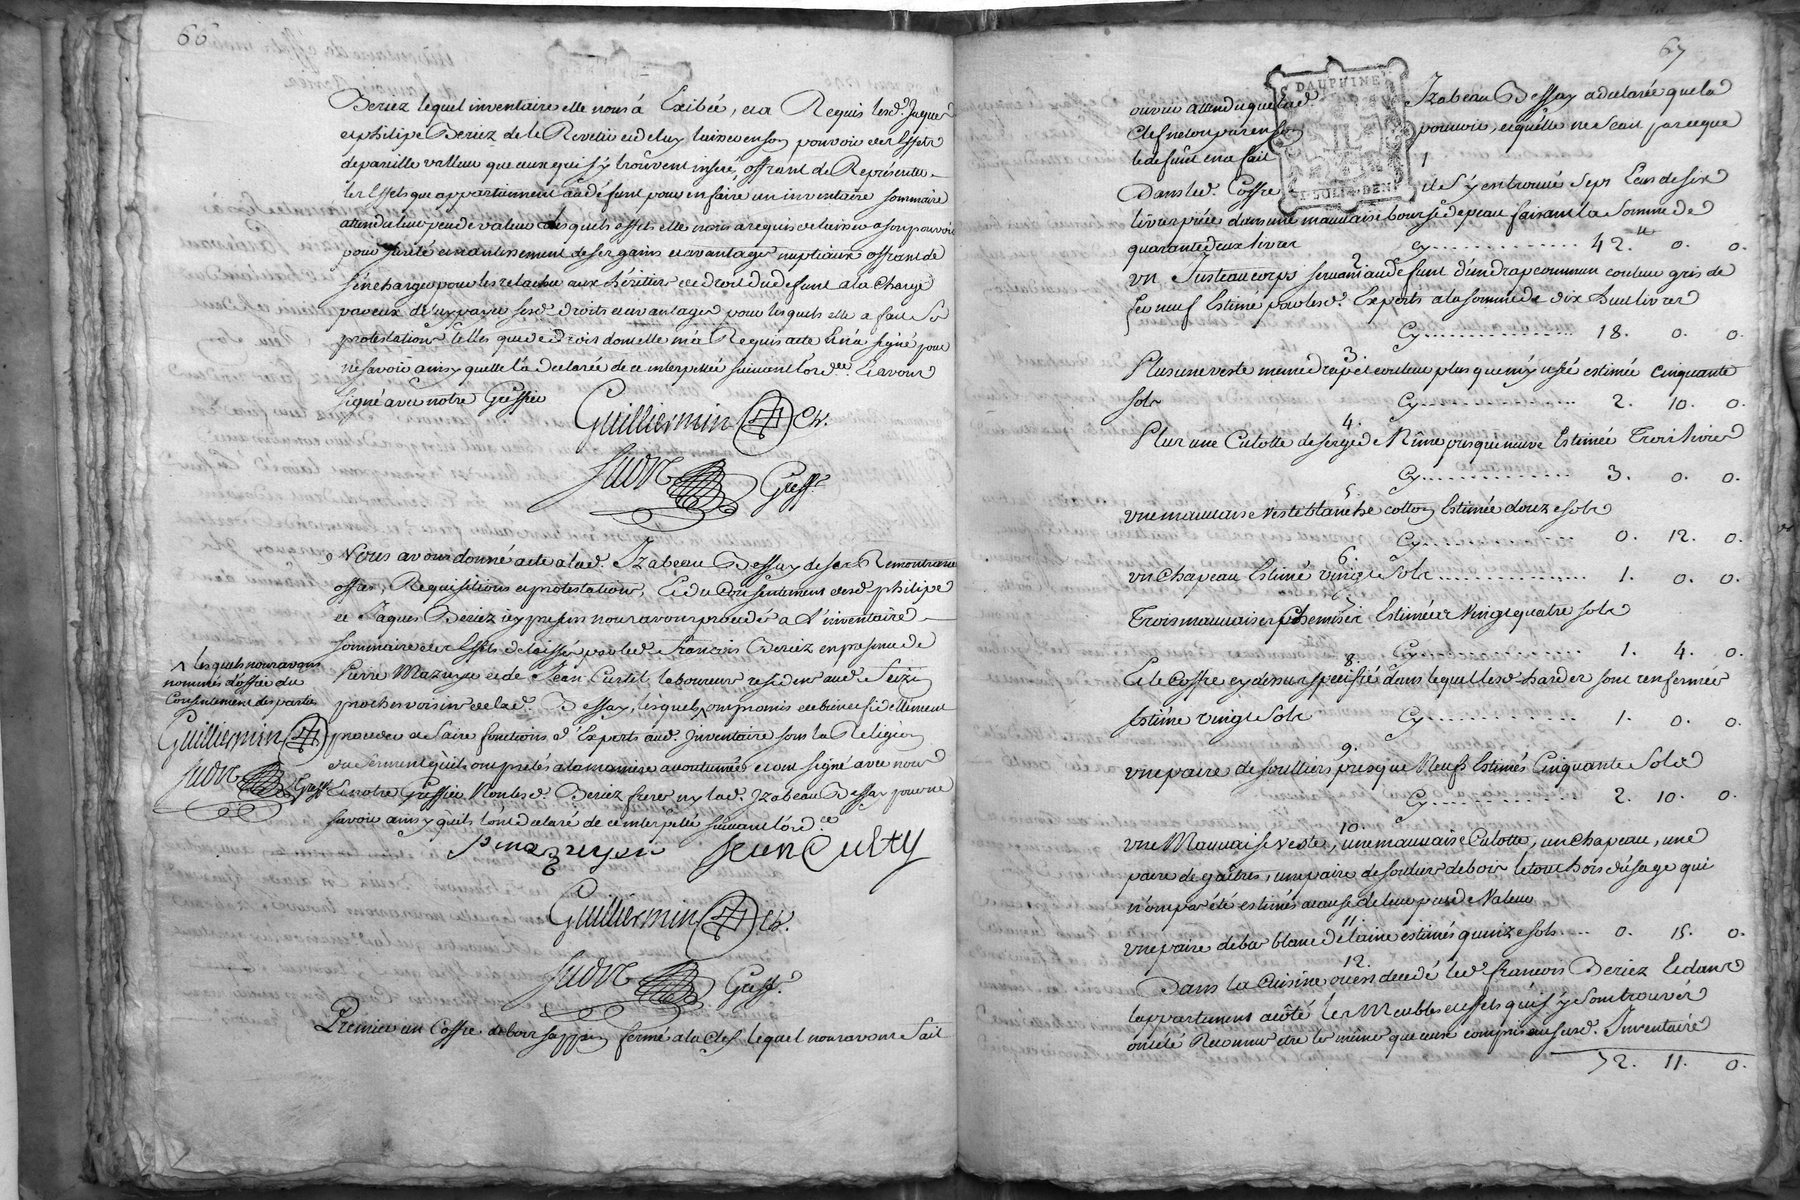 66
Beriez lequel inventaire elle nous à Exibée, et a Requis lesd. Jaques
et philipe Beriez de le Revetir et de luy laisser en son pouvoir des Effets
de pareille valleur que ceux qui s'y trouvent inseré, offrant de Représenter
les Effets que appartiennent au défunt pour en faire un inventaire sommaire
attendu leur peu de valeur desquels effets elle nous a requis de laisser a son pouvoir
pour sureté et nantissement de ses gains et avantages nuptiaux offrant de
s'en charger pour les relacher aux héritiers de droit dud defunt a la charge
par eux de luy payer sesd. droits et avantages pour lesquels elle a fait ses
protestations telles que de droit dont elle m'a Requis acte Et n'a signé pour
ne savoir ainsy quelle l'a declarée de ce interpellée suivant l'ord.ce Et avons
signé avec notre Greffier
Guilliermin Ch.
Juvin Greff.r
Nous avons donné acte a lad. Izabeau Bessay de ses Remontrances
offres, Requisitions et protestations, Et du Consentement desd. philipe
et Jaques Beriez icy presens nous avons procedé a L'inventaire
sommaire des Effets delaissés par led. François Beriez en presence de
Pierre Mazuyer et de Jean Curtet laboureurs residens aud.
proches voisins de lad. Bessay, lesquels ^ ont promis de bien et fidellement
proceder et faire fonctions d'Experts aud. Inventaire sous la Religion
du serment qu'ils ont pretés a la maniere accoutumée et ont signé avec nous
Et notre Greffier Non lesd. Beriez freres ny lad. Izabeau Bessay pour ne
savoir ainsy quils l'ont declaré de ce interpellés suivant l'ord.ce
^ lesquels nous avons
nommés d'office du
Consentement des parties
Guilliermin
Juvin Greff.
Guilliermin Ch.
Juvin Greff.r
Premier un Coffre de bois sappin fermé a la Clef lequel nous avons fait
67
DAUPHINE
ouvrir attendu que lad. Izabeau Bessay a declarée que la
Clef n'et on par en son pouvoir, et quelle ne scait pas ce que
le defunt en a fait
1
Dans led. Coffre il s'y en trouvé sept Ecus de six
livres piece dans une mauvaise bourse de peau faisant la Somme de
quarante deux livres Cy 42.ll 0. 0.
2.
un Justeaucorps servant au defunt d'un drap commun couleur gris de
fer neuf Estimé par lesd. Experts a la somme de dix huit livres
Cy 18. 0. 0.
3.
Plus une veste meme drap et couleur plus que my usée estimée cinquante
sols Cy 2. 10. 0.
4.
Plus une Culotte de serge de Nime presque neuve Estimée Trois livres
Cy 3. 0. 0.
5.
une mauvaise veste blanche cotton Estimée douze sols
Cy 0. 12. 0.
6.
un Chapeau Estimé vingt Sols 1. 0. 0.
7
Trois mauvaises Chemises Estimées Vingt quatre sols
Cy 1. 4. 0.
8.
Et le Coffre cy dessus specifié dans lequel lesd. hardes sont renfermées
Estimé vingt Sols Cy 1. 0. 0.
9.
une paire de soulliers presque Neufs Estimés Cinquante Sols
Cy 2. 10. 0.
10.
une Mauvaise veste, une mauvaise Culotte, un Chapeau, une
paire de guêtres, une paire de souliers de bois le tout hors d'usage qui
n'ont pas été estimés a cause de leur peu de Valeur
11
une paire de bas blanc de laine estimés quinze sols 0. 15. 0.
12.
Dans la cuisine ou est decedé led. francois Beriez Et dans
lappartement acôté les Meubles et effets qui s'y sont trouvés
ont été Reconnus etre les mêmes que ceux compris au susd. Inventaire
72. 11. 0.